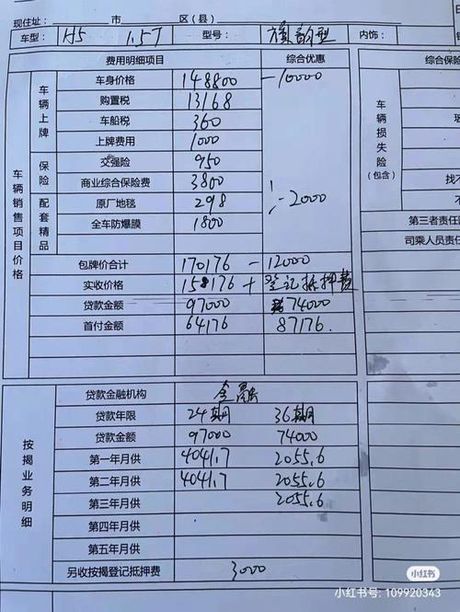 现住址: 市 区(县)
车型: H5 1.5T 型号: 旗韵型 内饰:
费用明细项目 综合优惠 综合保险
车辆销售项目价格
车辆上牌 车身价格 148800 -10000
购置税 13168
车船税 360
上牌费用 1000
保险 交强险 950
商业综合保险费 3800
配套精品 原厂地毯 298 -2000
全车防爆膜 1800
包牌价合计 170176 -12000
实收价格 158176 + 登记抵押费
贷款金额 97000 74000
首付金额 64176 87176.
车辆损失险(包含)
找不
第三者责任
司乘人员责任
按揭业务明细
贷款金融机构 金融
贷款年限 24期 36期
贷款金额 97000 74000
第一年月供 4041.7 2055.6
第二年月供 4041.7 2055.6
第三年月供 2055.6
第四年月供
第五年月供
另收按揭登记抵押费 3000
小红书
小红书号: 109920343